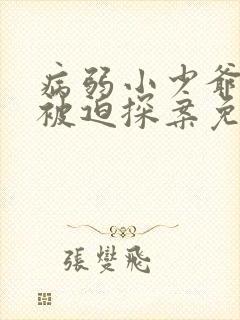 病弱小少爺
被迫探案免
張燮飛